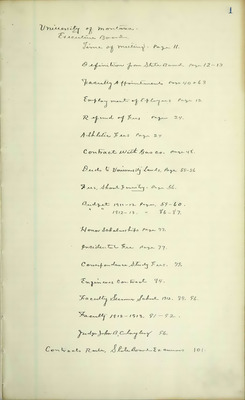 1
University of Montana.
Executive Board.
Time of meeting. Page 11.
Definition from State Board. Page 12-13
Faculty Appointments Page
Employment of Employees Page 12.
Refund of Fees Page 24.
Athletic Fees Page 24
Contract With Page 45.
Deeds to University Lands. Page
Fee Short Page 56.
Budget 1911-12. Page 59-60.
" 1912-13. " 86-87.
Honor Scholarships Page 77.
Incidental Fee Page 77.
Correspondence Study Fees. 78.
Engineers Contract
Faculty Summer School 1912.
Faculty 1912-1913. 81-82.
Judge John B. 82.
Contracts State Board Examiners 101.